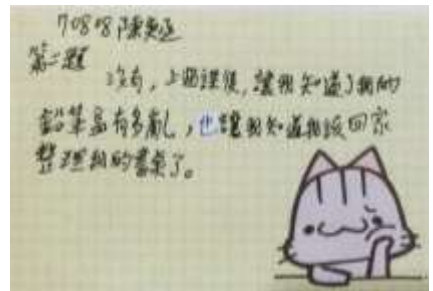 70808 陳奕廷
第二題
沒有，上過課後，讓我知道了我的
鉛筆盒有多亂，也讓我知道我該回家
整理我的書桌了。